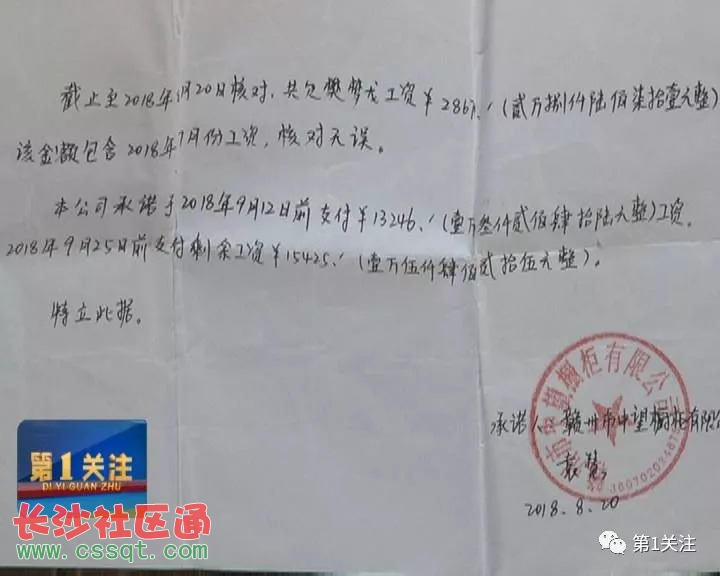 截止至2018年8月20日核对,共欠樊梦龙工资¥28671(贰万捌仟陆佰柒拾壹元整)
该金额包含2018年7月份工资,核对无误。
本公司承诺于2018年9月12日前支付¥13246(壹万叁仟贰佰肆拾陆元整)工资。
2018年9月25日前支付剩余工资¥15425(壹万伍仟肆佰贰拾伍元整)。
特立此据。
橱柜有限公司
承诺人:赣州市中望橱柜有限公
2018.8.20
第1关注
DI YI GUAN ZHU
长沙社区通
www.cssqt.com
第1关注